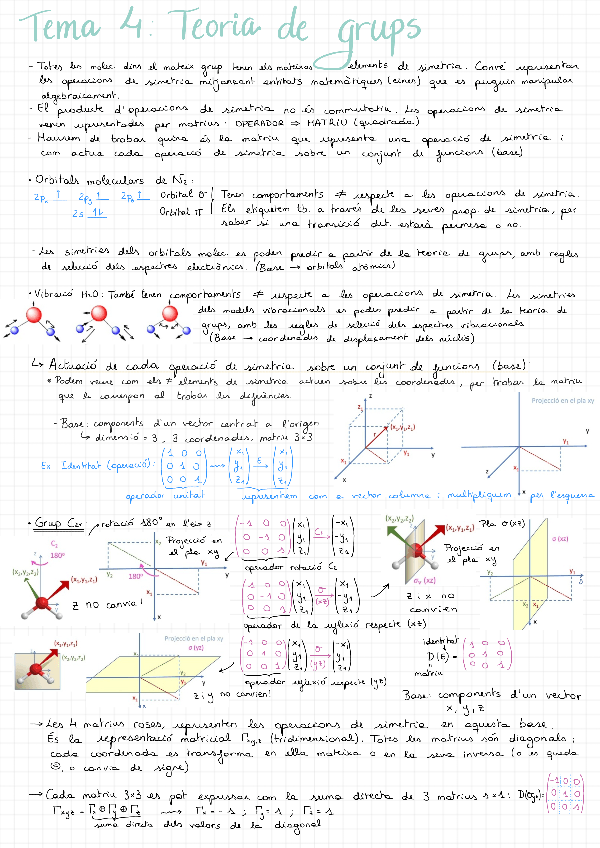 Tema 4: Teoria de grups
- Totes les molec. dins el mateix grup tenen els mateixos elements de simetria. Convé representar
les operacions de simetria mitjançant entitats matemàtiques (eines) que es puguin manipular
algebraicament.
- El producte d'operacions de simetria no és commutatiu. Les operacions de simetria
venen representades per matrius: OPERADOR ⇒ MATRIU (quadrada)
- Haurem de trobar quina és la matriu que representa una operació de simetria i
com actua cada operació de simetria sobre un conjunt de funcions (base)
• Orbitals moleculars de N₂:
2px ↑ 2py ↑ 2pz ↑ Orbital σ Tenen comportaments ≠ respecte a les operacions de simetria.
2s ↑↓ Orbital π Els etiquetem tb. a través de les seves prop. de simetria, per
saber si una transició dut. estarà permesa o no.
- Les simetries dels orbitals molec. es poden predir a partir de la teoria de grups, amb regles
de selució dels espectres electrònics. (Base → orbitals atòmics)
• Vibració H₂O: També tenen comportaments ≠ respecte a les operacions de simetria. Les simetries
dels modes vibracionals es poden predir a partir de la teoria de
grups, amb les regles de selució dels espectres vibracionals
(Base → coordenades de desplaçament dels nuclis)
↳ Actuació de cada operació de simetria sobre un conjunt de funcions (base):
• Podem veure com els ≠ elements de simetria actuen sobre les coordenades, per trobar la matriu
que le correspon al trobar les diferències.
- Base: components d'un vector centrat a l'origen
↳ dimensió = 3, 3 coordenades, matriu 3×3
z z₁ r (x₁,y₁,z₁) y₁ y x₁ x
Projección en el pla xy
y y₁ z x₁ x
Ex Identitat (operació): (1 0 0 / 0 1 0 / 0 0 1) → (x₁ / y₁ / z₁) E→ (x₁ / y₁ / z₁)
operador unitat representem com a vector columna i multipliquem per l'esquerra
• Grup C₂ᵥ rotació 180° en l'eix z
C₂ 180° (x₂,y₂,z₂) (x₁,y₁,z₁)
Projección en el pla xy
z no canvia!
(-1 0 0 / 0 -1 0 / 0 0 1) (x₁ / y₁ / z₁) C₂→ (-x₁ / -y₁ / z₁)
operador rotació C₂
(1 0 0 / 0 -1 0 / 0 0 1) (x₁ / y₁ / z₁) σ (xz)→ (x₁ / -y₁ / z₁)
operador de la reflexió respecte (xz)
(x₂,y₂,z₂) (x₁,y₁,z₁) σᵥ (xz)
Pla σ(xz)
Projección en el pla xy
z i x no canvien
σ (xz)
(x₁,y₁,z₁) (x₂,y₂,z₂)
Projección en el pla xy
σ (yz)
z i y no canvien!
(-1 0 0 / 0 1 0 / 0 0 1) (x₁ / y₁ / z₁) σ (yz)→ (-x₁ / y₁ / z₁)
operador reflexió respecte (yz)
identitat
D(E) = (1 0 0 / 0 1 0 / 0 0 1)
matriu
Base: components d'un vector
x, y, z
→ Les 4 matrius roses, representen les operacions de simetria en aquesta base.
És la representació matricial Γxyz (tridimensional). Totes les matrius són diagonals:
cada coordenada es transforma en ella mateixa o en la seva inversa (o es queda
⊕, o canvia de signe)
→ Cada matriu 3×3 es pot expressar com la suma directa de 3 matrius 1×1: D(σyz)=(-1 0 0 / 0 1 0 / 0 0 1)
Γxyz = Γx ⊕ Γy ⊕ Γz → Γx = -1 ; Γy = 1 ; Γz = 1
suma directa dels valors de la diagonal